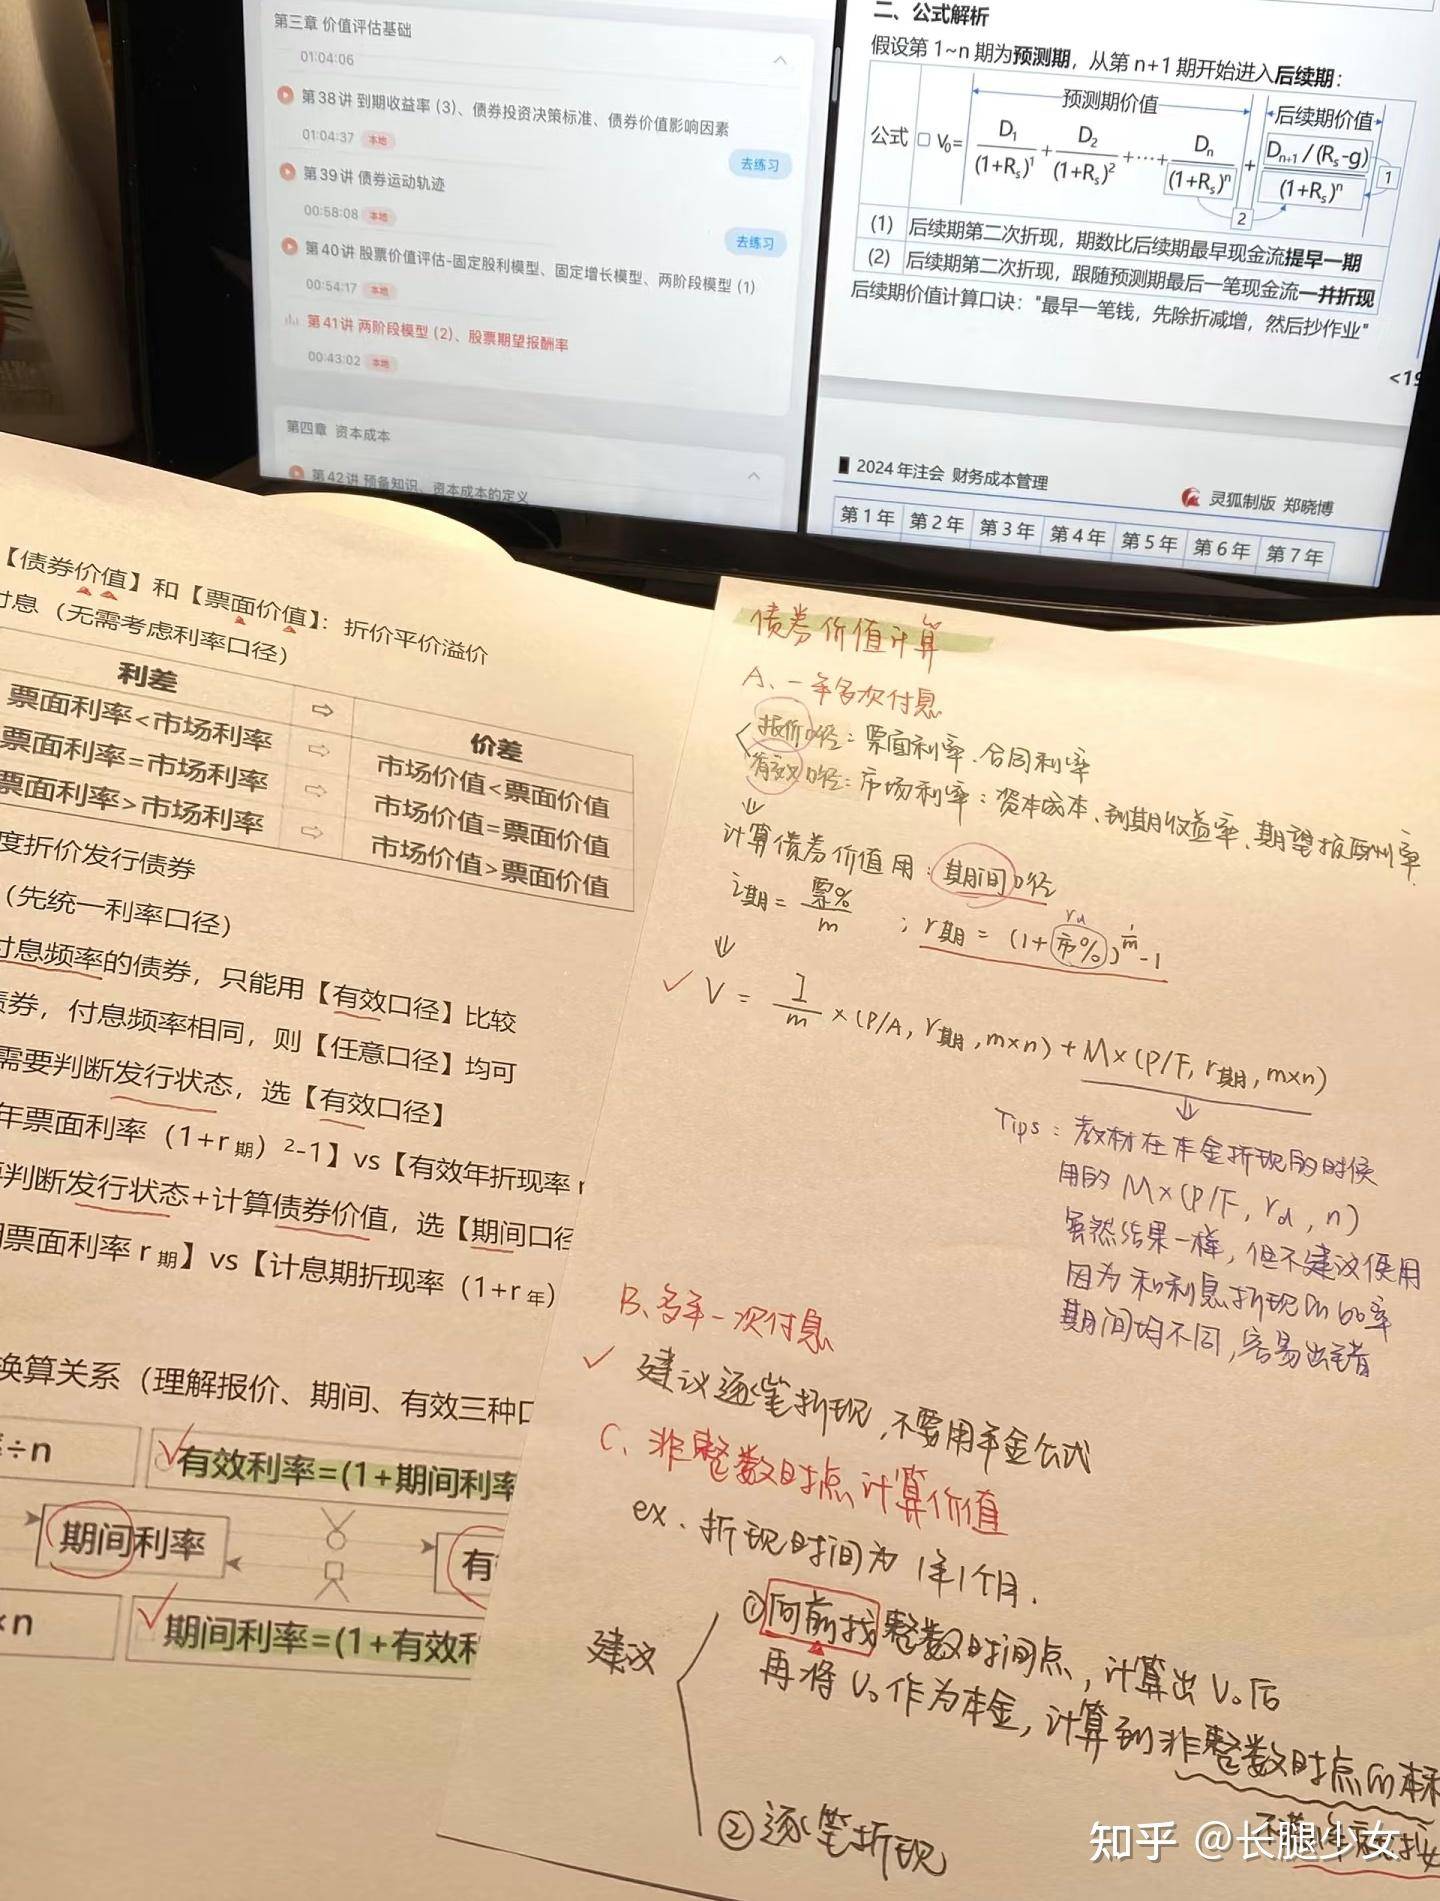 第三章 价值评估基础
01:04:06
第38讲 到期收益率 (3)、债券投资决策标准、债券价值影响因素
01:04:37 本地
去练习
第39讲 债券运动轨迹
00:58:08 本地
去练习
第40讲 股票价值评估-固定股利模型、固定增长模型、两阶段模型 (1)
00:54:17 本地
第41讲 两阶段模型 (2)、股票期望报酬率
00:43:02 本地
第四章 资本成本
第42讲 预备知识、资本成本的定义
二、公式解析
假设第 1~n 期为预测期，从第 n+1 期开始进入后续期：
预测期价值 后续期价值
公式 V₀= D₁/(1+Rₛ)¹ + D₂/(1+Rₛ)² +⋯+ Dₙ/(1+Rₛ)ⁿ + Dₙ₊₁/(Rₛ-g)/(1+Rₛ)ⁿ
1
2
(1) 后续期第二次折现，期数比后续期最早现金流提早一期
(2) 后续期第二次折现，跟随预测期最后一笔现金流一并折现
后续期价值计算口诀："最早一笔钱，先除折减增，然后抄作业"
<19
2024年注会 财务成本管理
灵狐制版 郑晓博
第1年 第2年 第3年 第4年 第5年 第6年 第7年
【债券价值】和【票面价值】：折价平价溢价
付息（无需考虑利率口径）
利差 ⇨ 价差
票面利率<市场利率 ⇨ 市场价值<票面价值
票面利率=市场利率 ⇨ 市场价值=票面价值
票面利率>市场利率 市场价值>票面价值
度折价发行债券
（先统一利率口径）
付息频率的债券，只能用【有效口径】比较
债券，付息频率相同，则【任意口径】均可
需要判断发行状态，选【有效口径】
年票面利率（1+r期）²-1】vs【有效年折现率 r
判断发行状态+计算债券价值，选【期间口径
票面利率 r期】vs【计息期折现率（1+r年）
换算关系（理解报价、期间、有效三种口
÷n
有效利率=(1+期间利率
期间利率
有
×n
期间利率=(1+有效利
债券价值计算
A、一年多次付息
报价口径：票面利率、合同利率
有效口径：市场利率：资本成本、到期收益率、期望报酬率
计算债券价值用：期间口径
i期 = 票%/m ； r期 = (1+市%)^(1/m) -1
rd
V = I/m ×(P/A, r期, m×n) + M×(P/F, r期, m×n)
Tips：教材在本金折现的时候
用的 M×(P/F, rd, n)
虽然结果一样，但不建议使用
因为和利息折现的的率
期间均不同，容易出错
B、多年一次付息
建议逐笔折现，不要用年金公式
C、非整数时点计算价值
ex. 折现时间为 1年1个月.
建议
①向前找整数时间点，计算出 V₀后
再将 V₀作为本金，计算到非整数时点的本利
②逐笔折现
知乎 @长腿少女